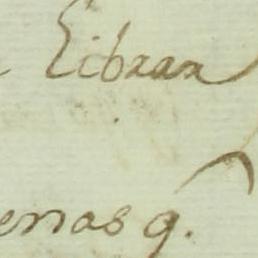 Librar
enas q.